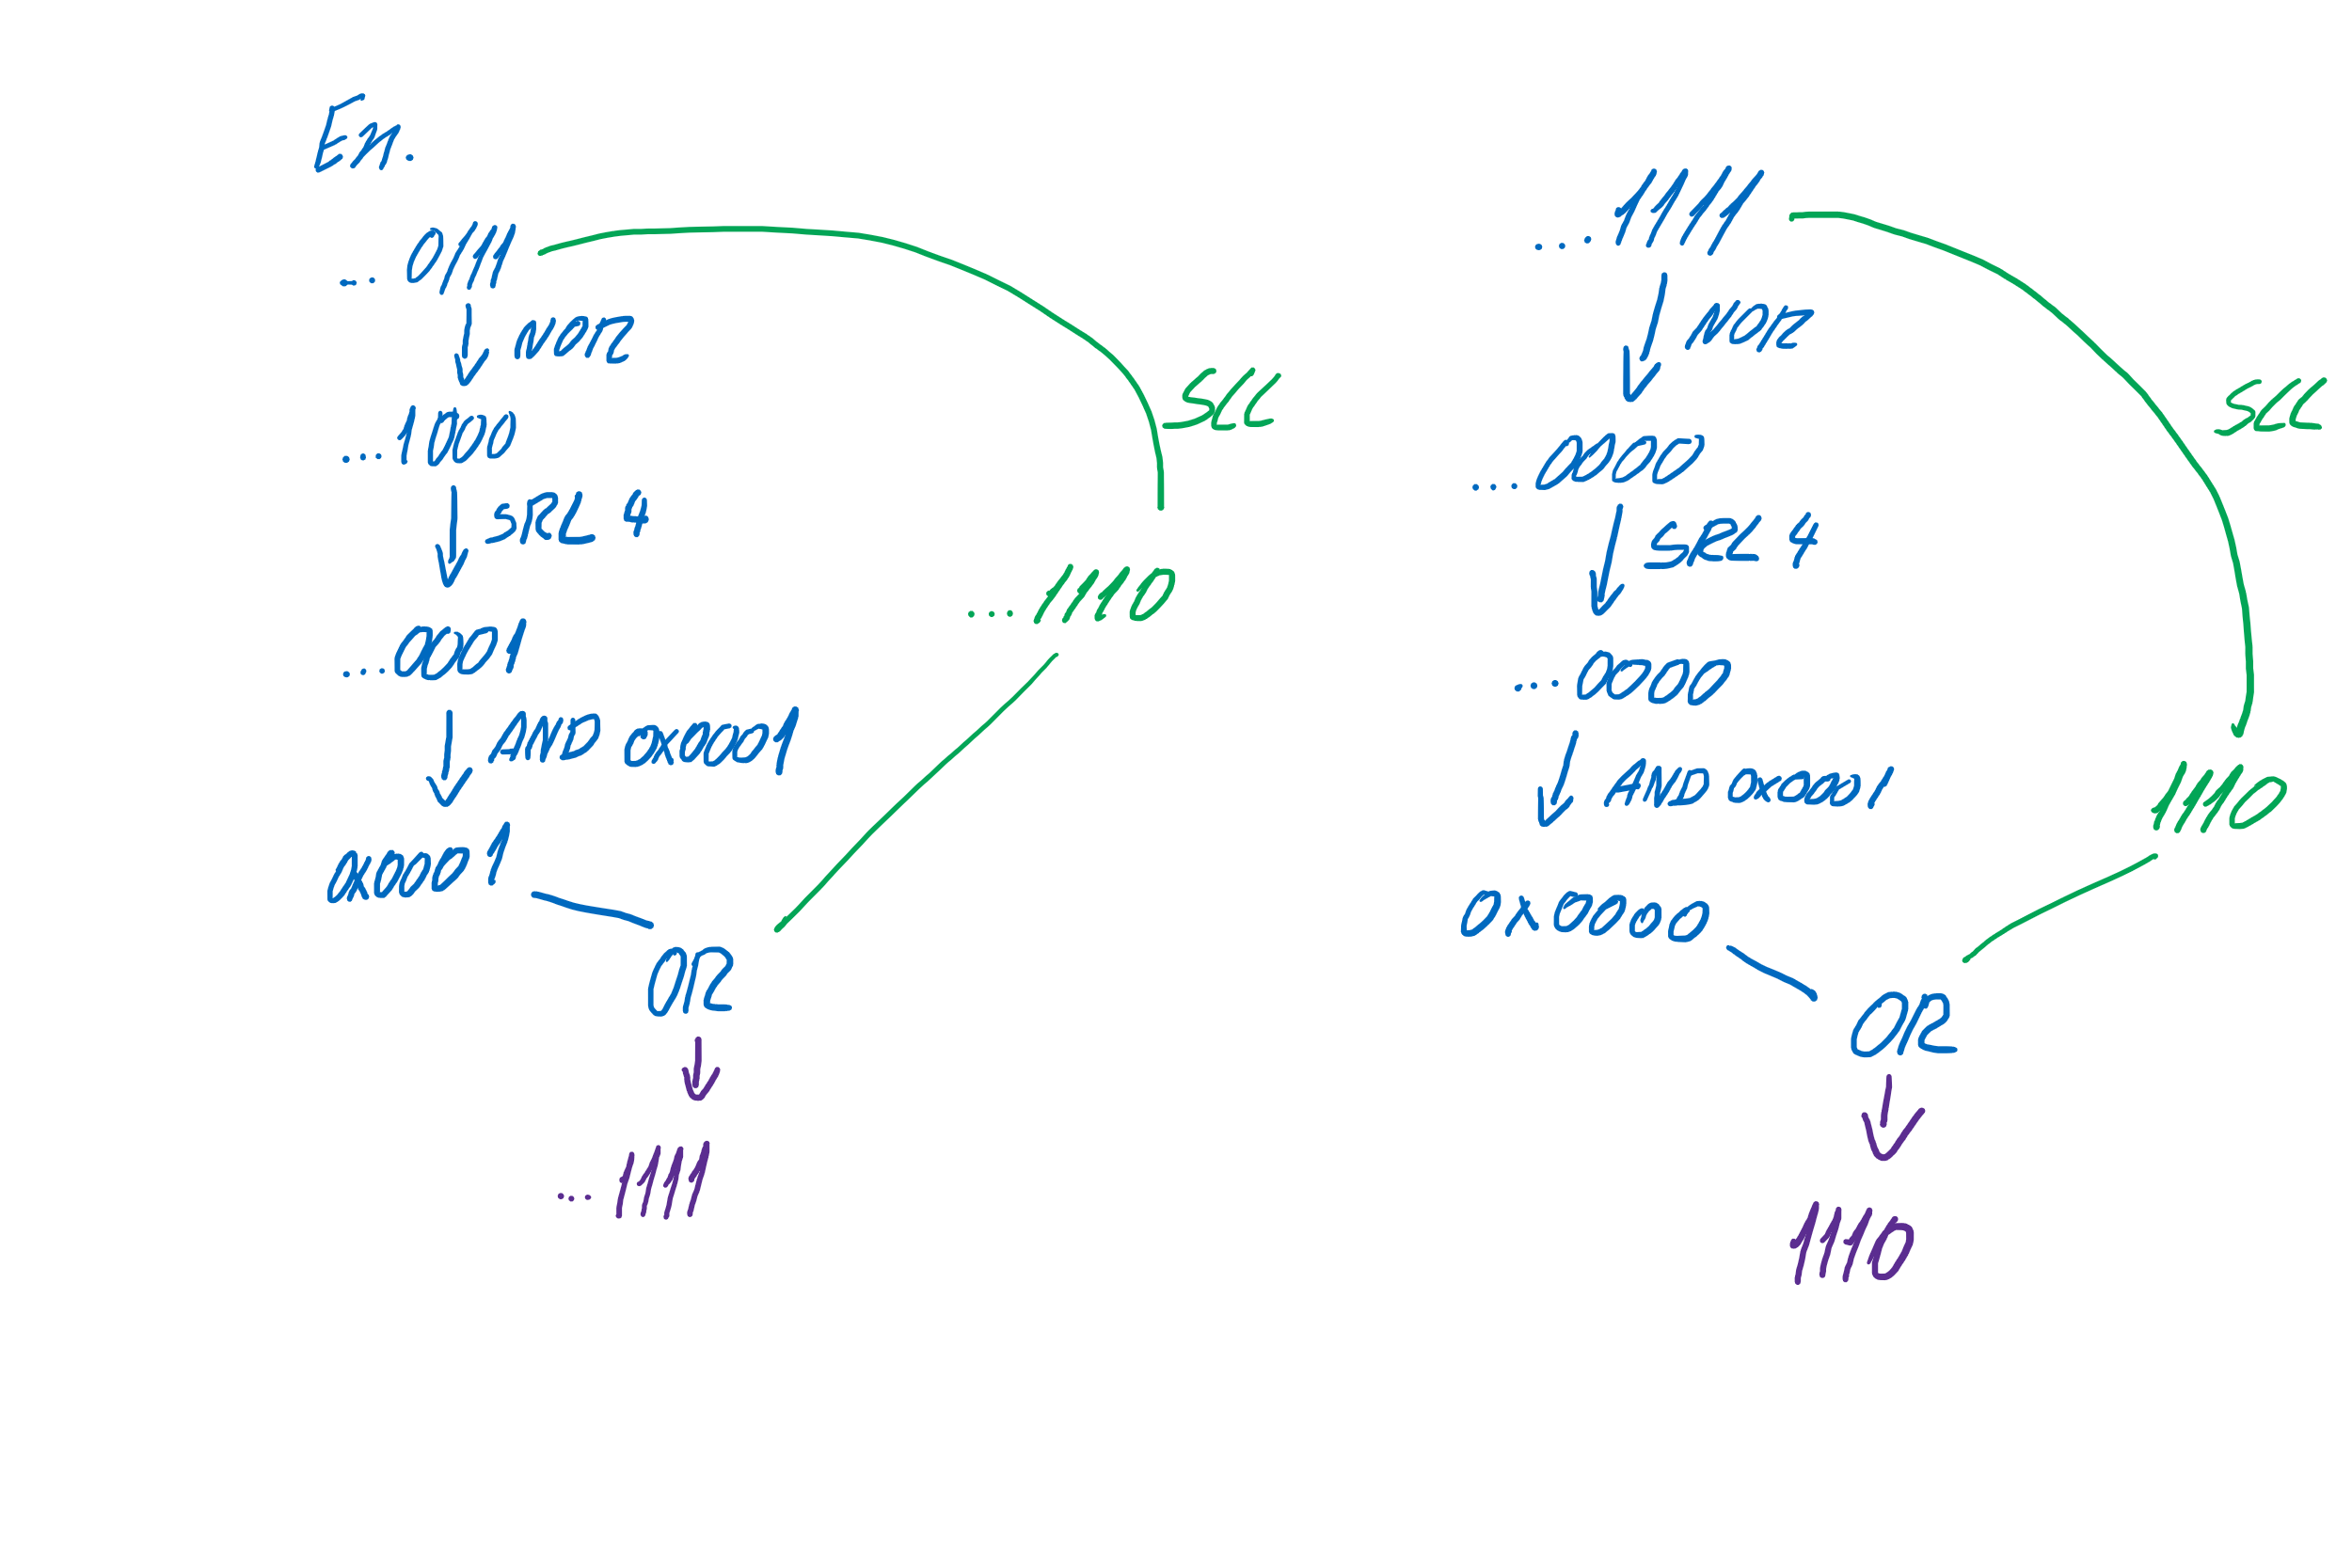 Ex.
... 0111
NOR
... 1000
SRL 4
... 0001
AND 0x0001
0x0001
SLL
... 1110
OR
... 1111
... 1111
NOR
... 0000
SRL 4
... 0000
AND 0x0001
0x0000
SLL
1110
OR
1110